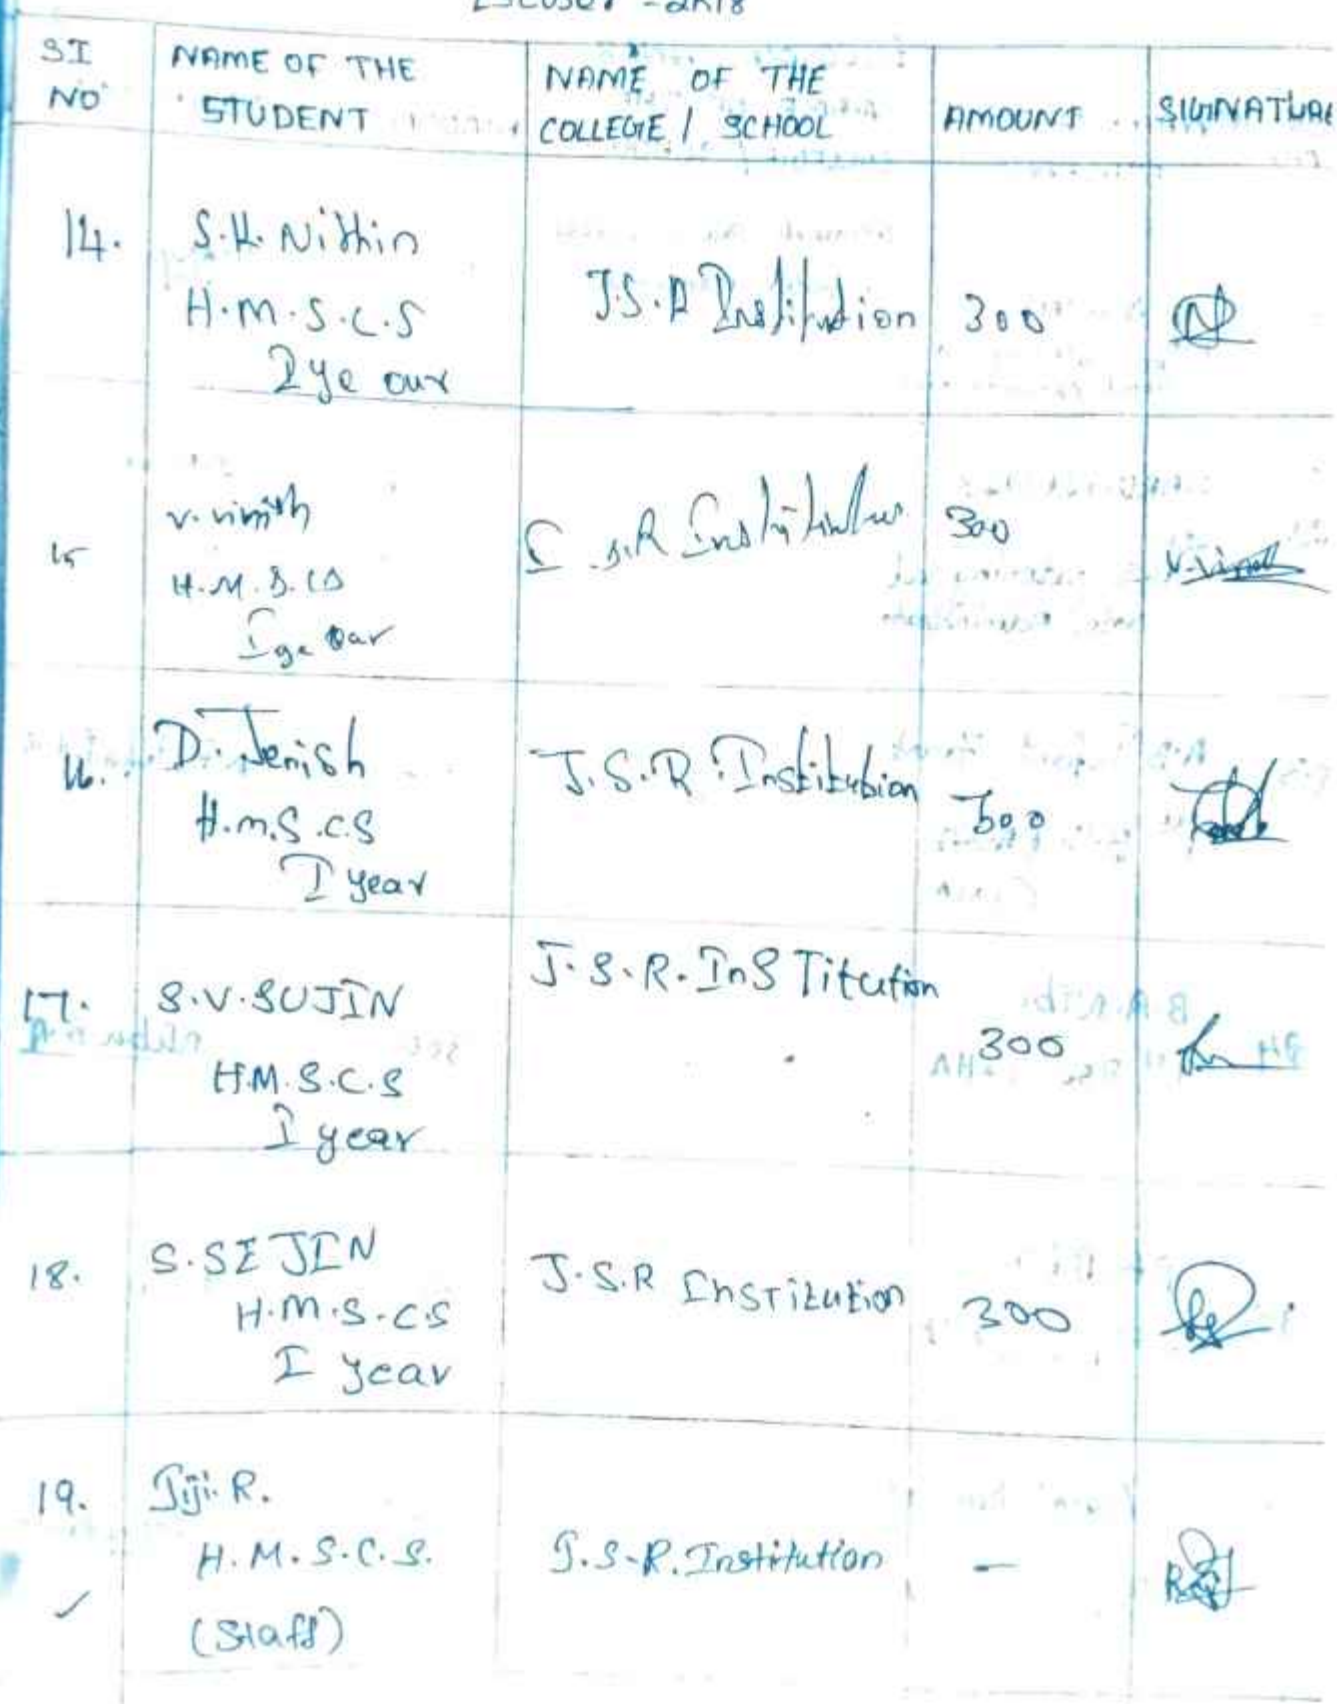 SI NO
NAME OF THE STUDENT
NAME OF THE COLLEGE / SCHOOL
AMOUNT
SIGNATURE
14.
S.H. Nithin
H.M.S.C.S
I year
J.S.R Institution
300
15
V. Vinish
H.M.S.CS
I year
J.S.R Institution
300
16.
D. Jenish
H.M.S.C.S
I year
J.S.R. Institution
300
17.
S.V. SUJIN
H.M.S.C.S
I year
J.S.R. InSTitution
300
18.
S. SEJIN
H.M.S.CS
I year
J.S.R InSTitution
300
19.
Jiji. R.
H.M.S.C.S.
(Staff)
J.S.R. Institution
-